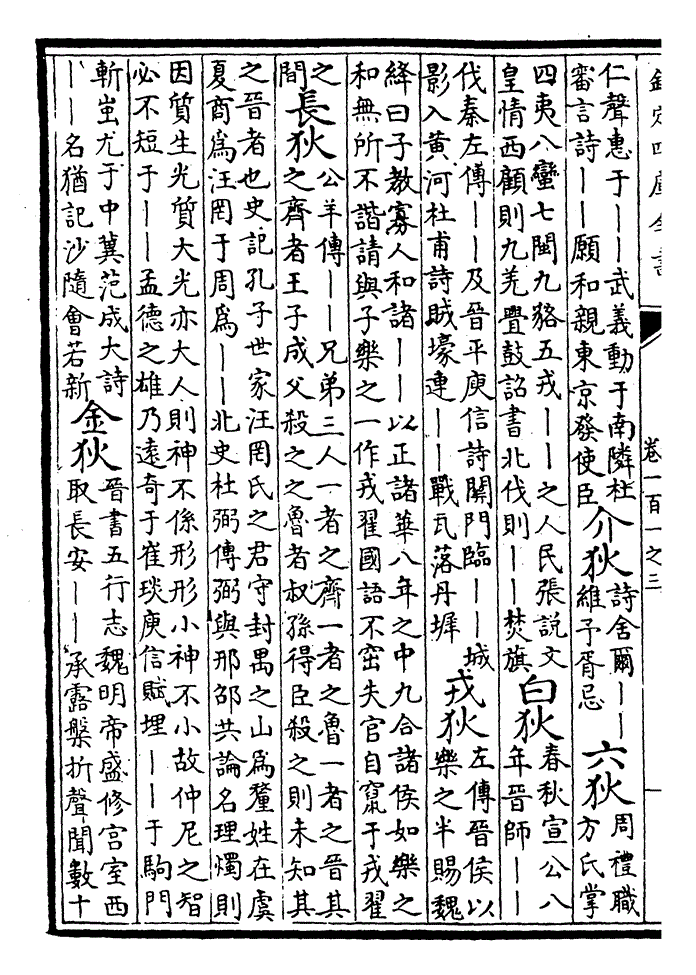 欽定四庫全書
卷一百一之三
仁聲惠于丨丨武義動于南隣杜
審言詩丨丨願和親東京發使臣
介狄
詩舍爾丨丨
維予胥忌
六狄
周禮職
方氏掌
四夷八蠻七閩九貉五戎丨丨之人民張説文
皇情西顧則九羌舋鼓詔書北伐則丨丨焚旗
白狄
春秋宣公八
年晉師丨丨
伐秦左傳丨丨及晉平庾信詩關門臨丨丨城
影入黄河杜甫詩賊壕連丨丨戰瓦落丹墀
戎狄
左傳晉侯以
樂之半賜魏
絳曰子教寡人和諸丨丨以正諸華八年之中九合諸侯如樂之
和無所不諧請與子樂之一作戎翟國語不窋失官自竄于戎翟
之
間
長狄
公羊傳丨丨兄弟三人一者之齊一者之魯一者之晉其
之齊者王子成父殺之之魯者叔孫得臣殺之則未知其
之晉者也史記孔子世家汪罔氏之君守封禺之山爲釐姓在虞
夏商爲汪罔于周爲丨丨北史杜弼傳弼與邢邵共論名理燭則
因質生光質大光亦大人則神不係形形小神不小故仲尼之智
必不短于丨丨孟德之雄乃遠奇于崔琰庾信賦埋丨丨于駒門
斬蚩尤于中冀范成大詩
丨丨名猶記沙隨會若新
金狄
晉書五行志魏明帝盛修宫室西
取長安丨丨承露槃折聲聞數十